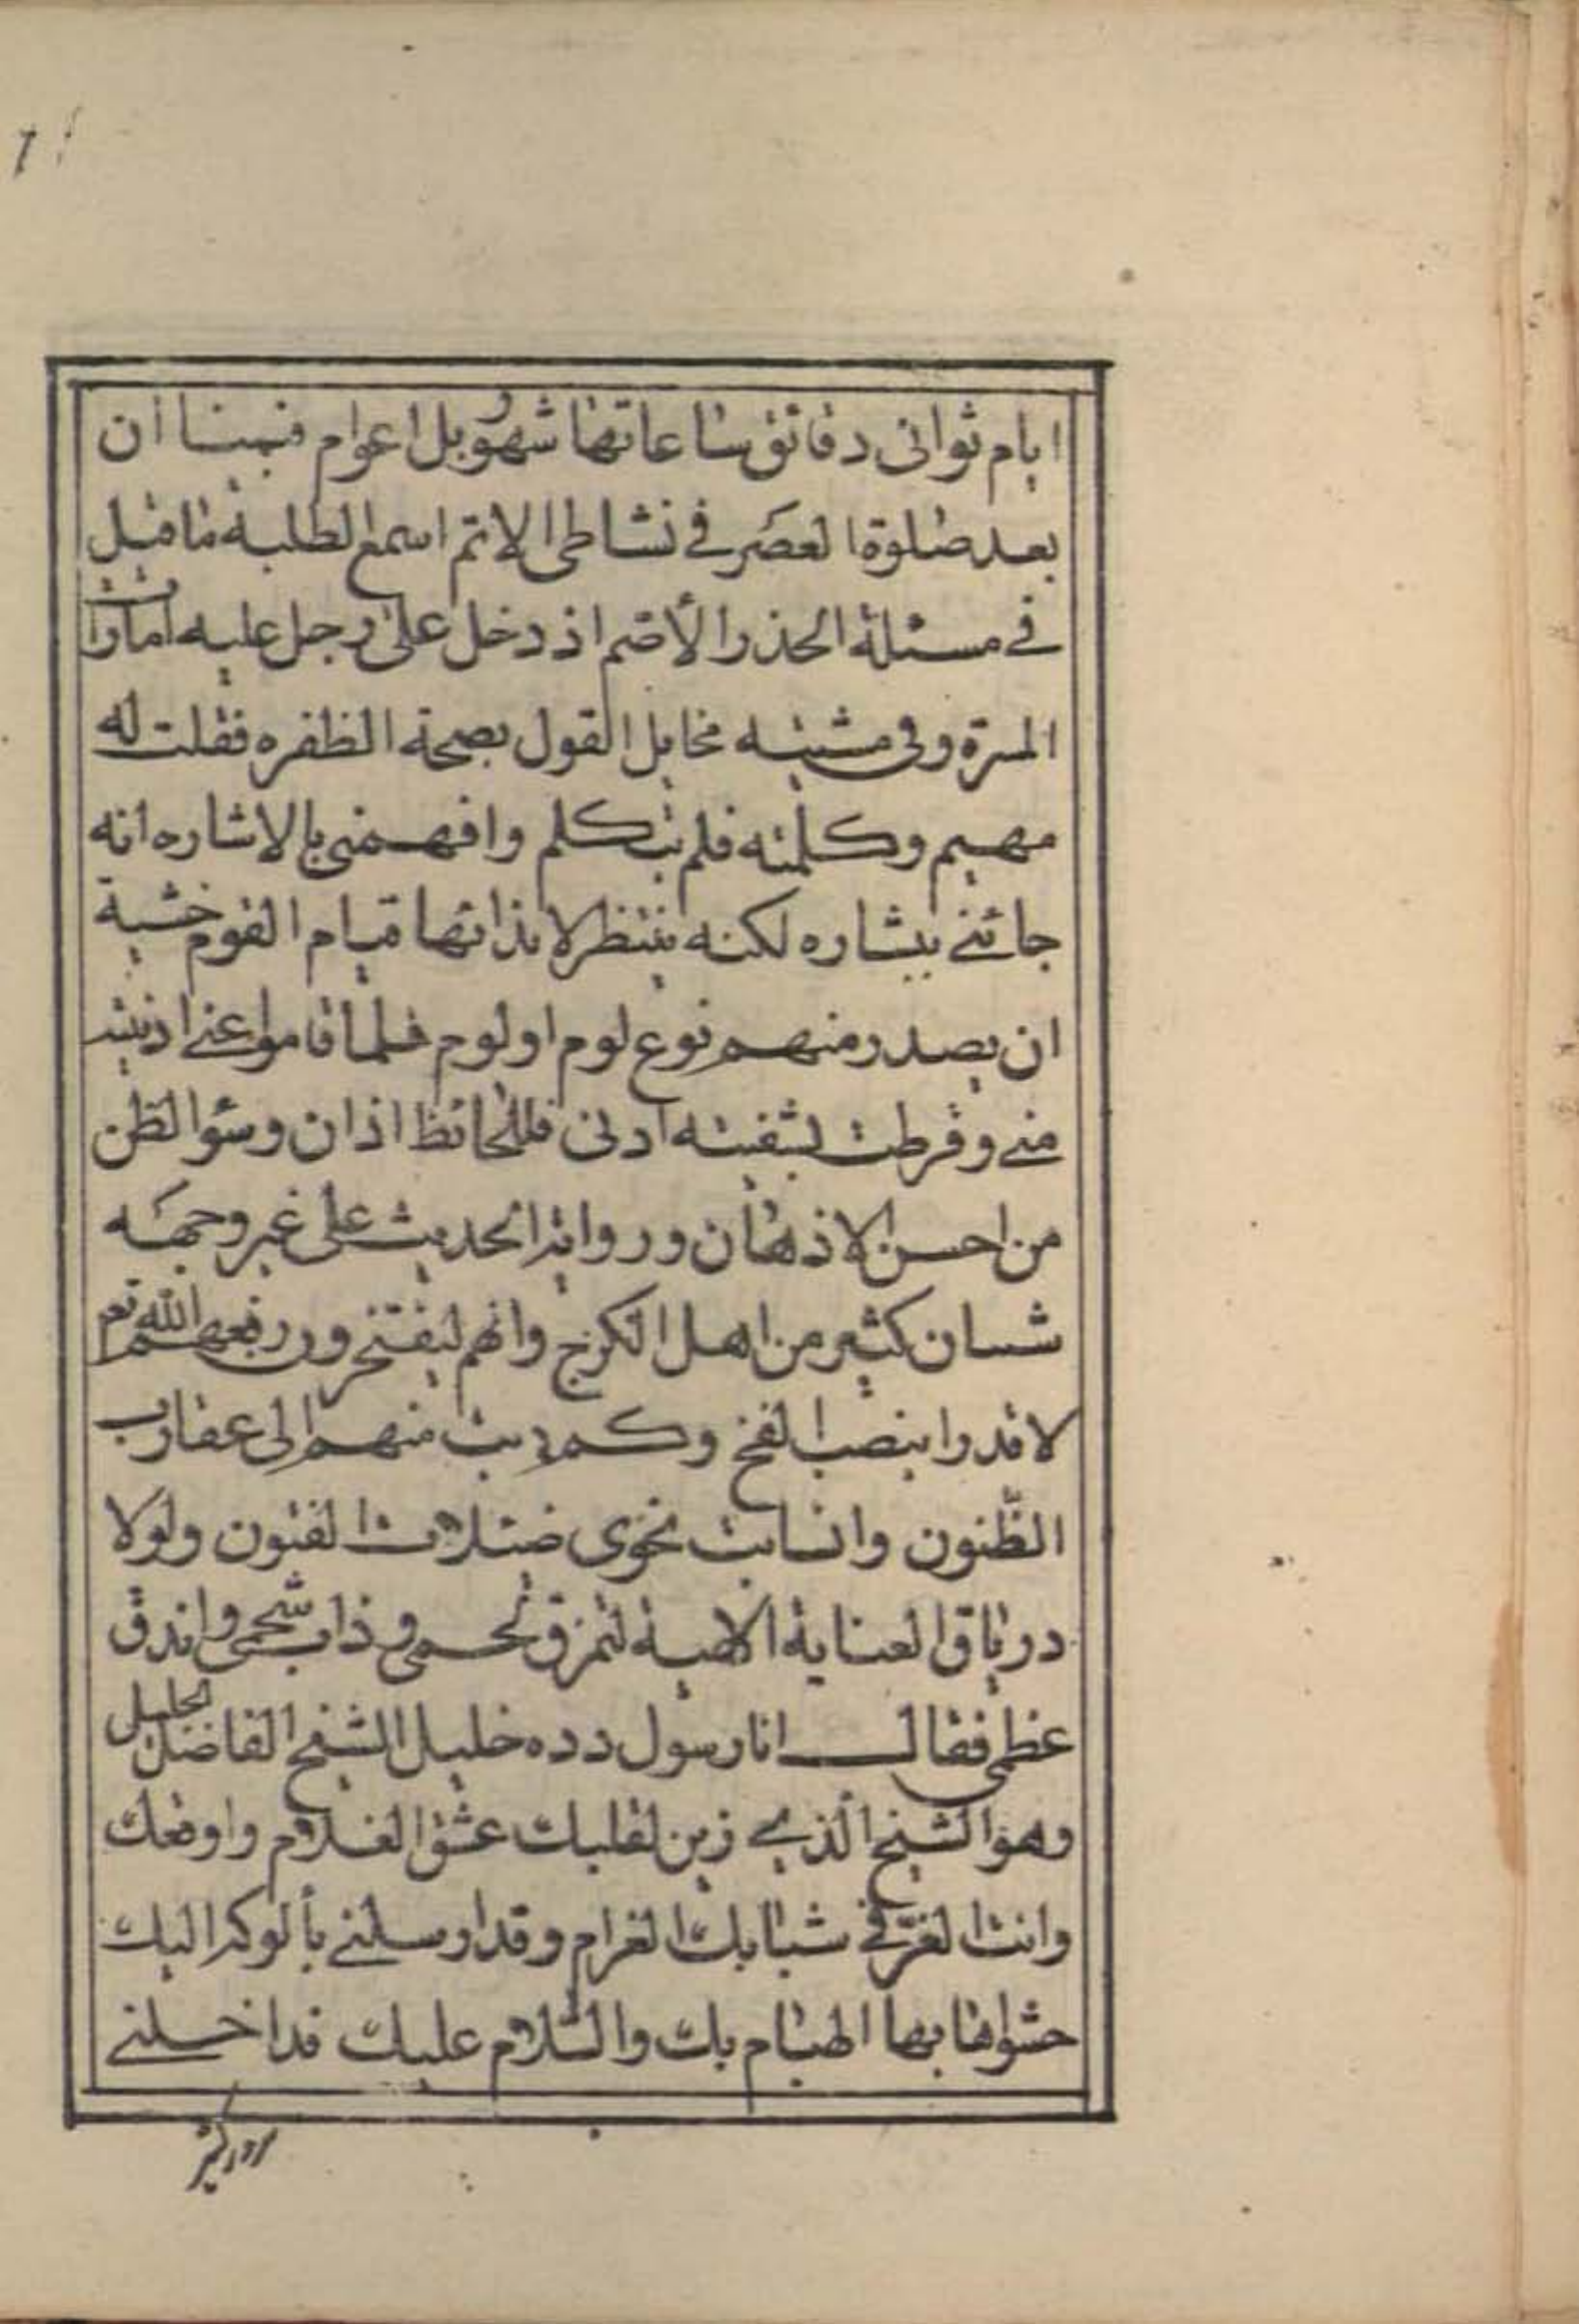 ايام ثوانى دقائق ساعاتها شهور بل اعوام فبينا ان
بعد صلوة العصر فى نشاطى الاتم اسمع الطلبة ما قيل
فى مسئلة الجذر الأصم اذ دخل على رجل عليه امارات
المسرة وفى مشيته مخايل القول بصحة الظفره فقلت له
مهيم وكلمته فلم يتكلم وافهمنى بالاشاره انه
جائنى ببشاره لكنه ينتظر لا قيام القوم خشية
ان يصدر منهم نوع لوم او لوم فلما قاموا عنى
منى وقرطت بشفيته اذنى فللحائط اذان وسؤ الظن
من احسن الاذهان ورواية الحديث على غير وجهه
شان كثير من اهل الكرخ وانهم ليفتخرون رفعهم الله تع
لا قدرا بنصب الفخ وكم دبت منهم الى عقارب
الظنون وانسابت نحوى ضئلات الفنون ولولا
درياق العناية الالهية لتمزق لحمى وذاب شحمى واندق
عظمى فقال انا رسول دده خليل الشيخ الفاضل الجليل
وهو الشيخ الذى زين لقلبك عشق الغلام واوقعك
وانت الغر فى شبابك الغرام وقد ارسلنى بألوكة اليك
حشوها بها الهيام بك والسلام عليك فداخلنى